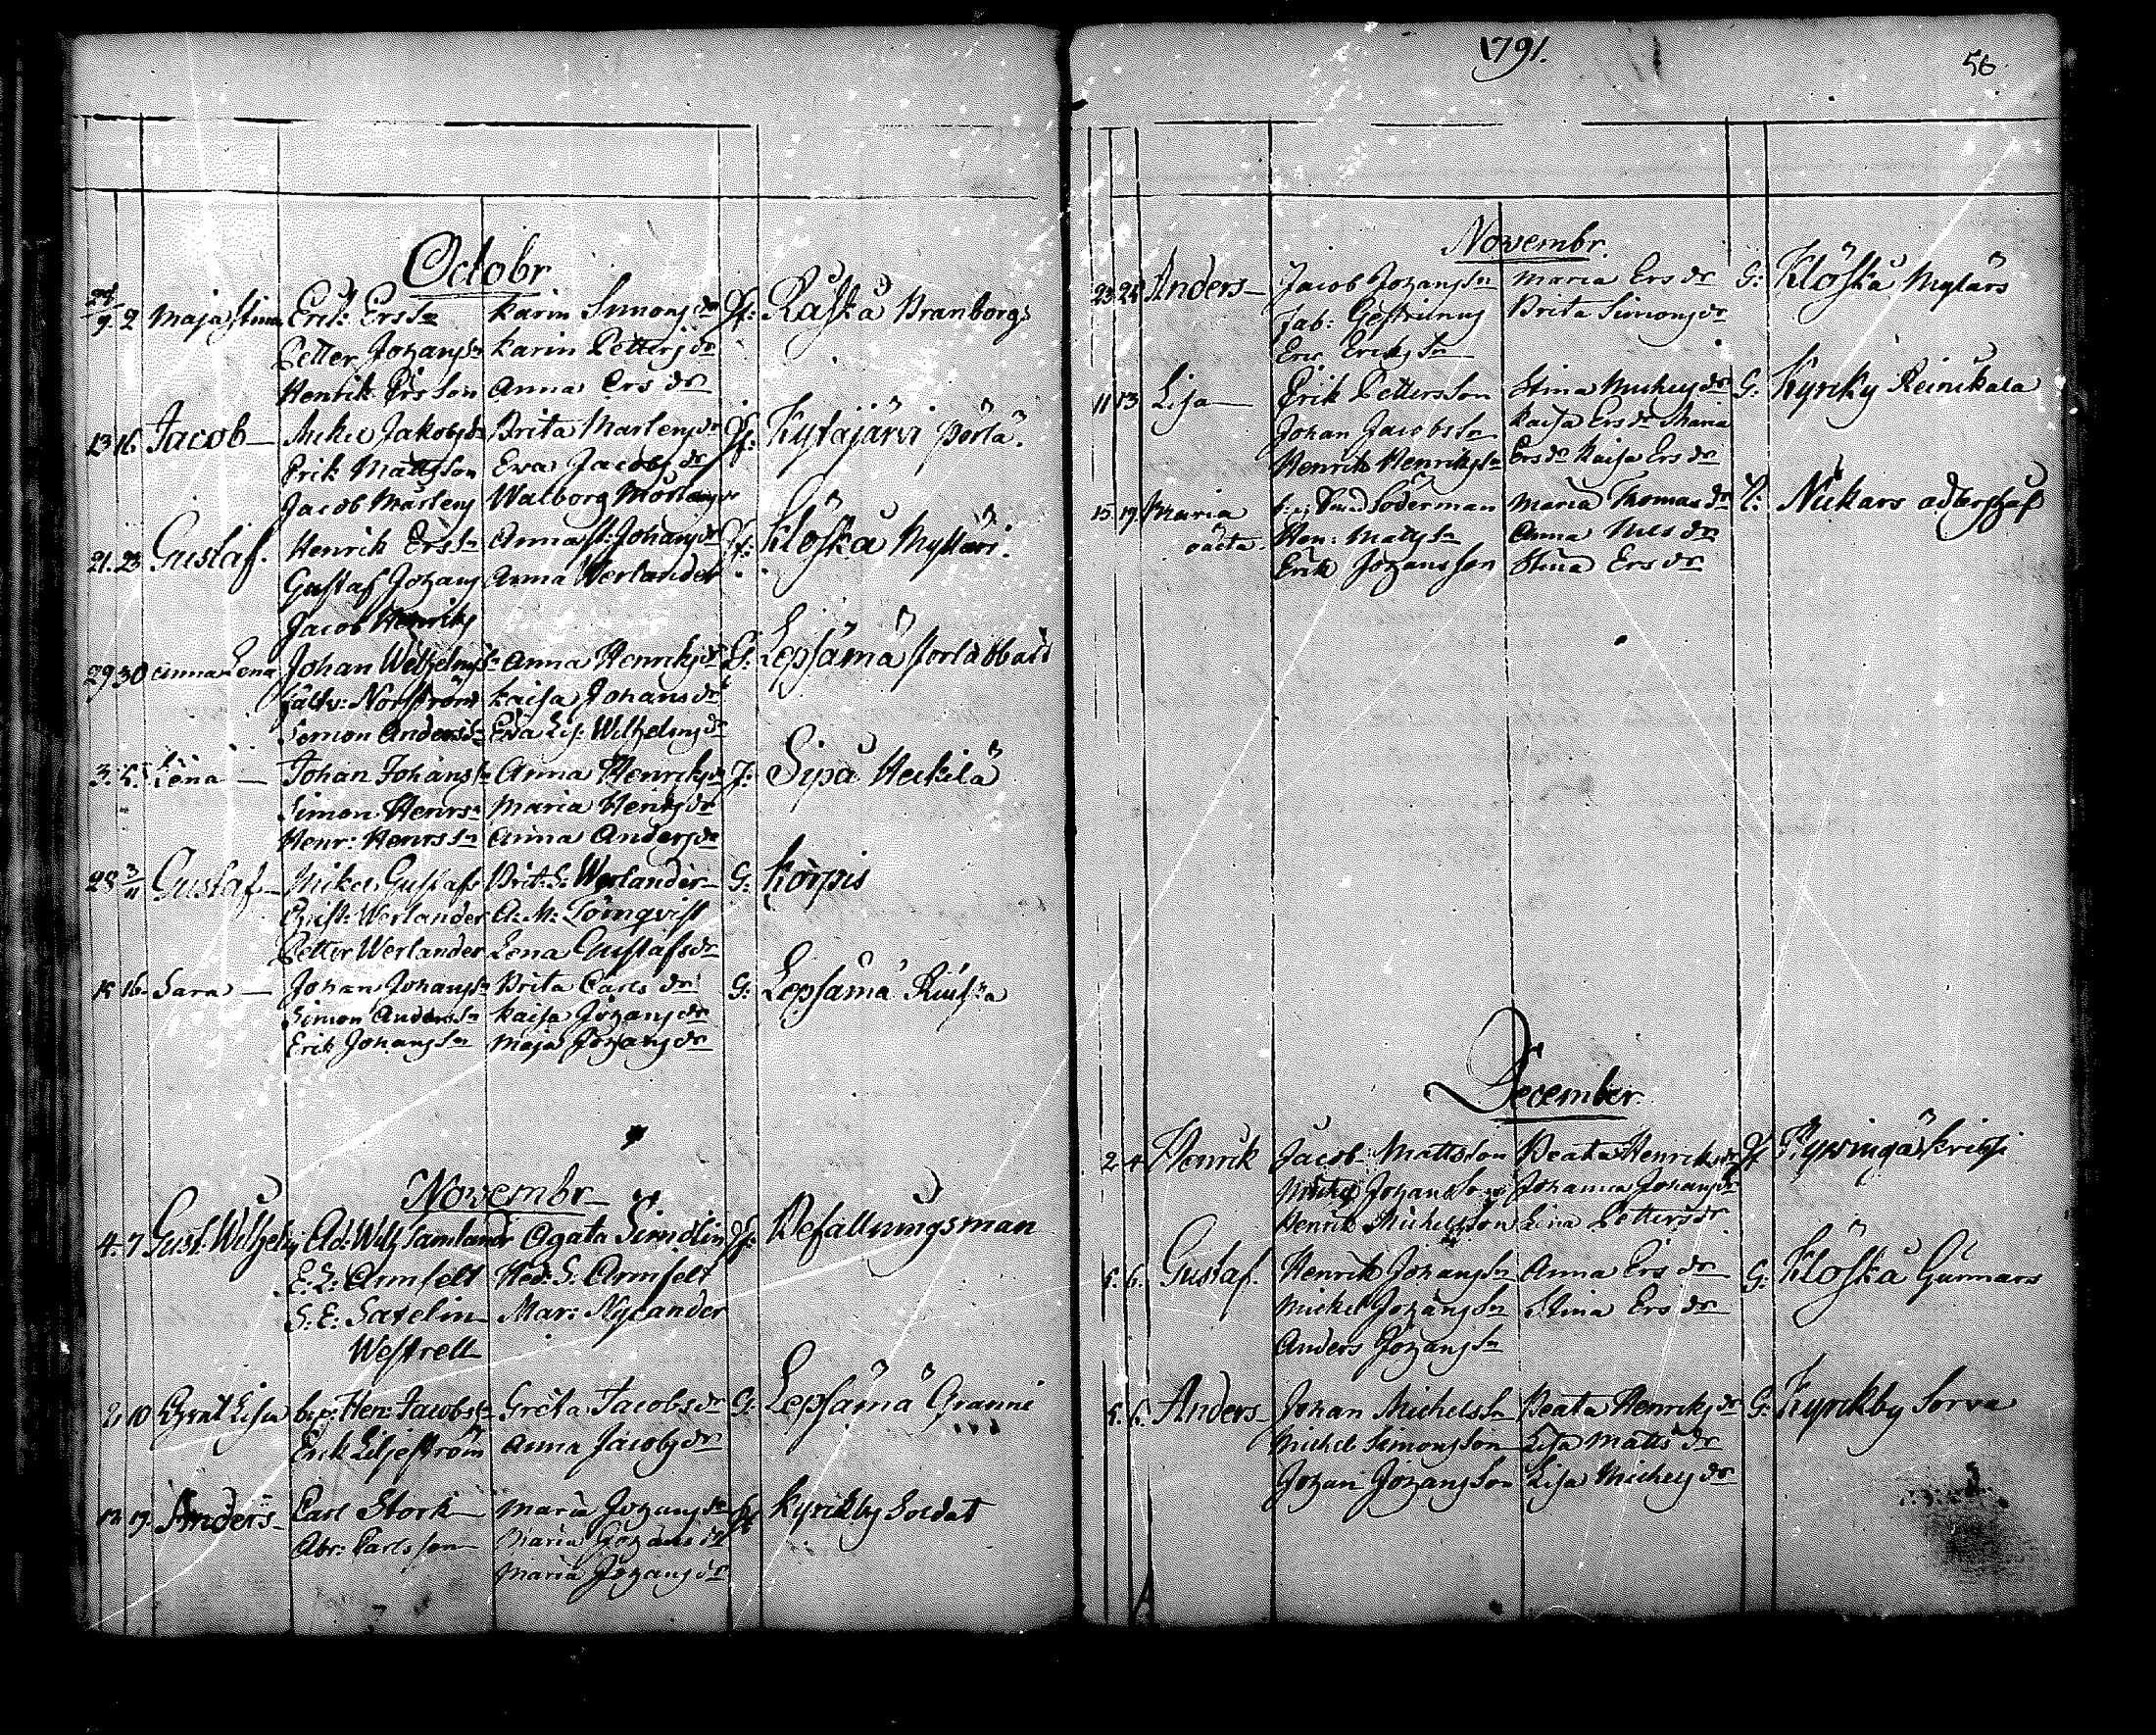 1791.
56
Octobr
29/9 2 Maja Stina Erik Ersson Karin Simonsdr Råskå Branborgs
Petter Johansson Karin Pettersdr
Henrik Ersson Anna Ersdr
13 16. Jacob Mikel Jakobsson Brita Martensdr Kytäjärvi Pörlä.
Erik Mattsson Eva Jacobsdr
Jacob Martens Walborg Mårtensdr
21. 23 Gustaf. Henrik Ersson Anna St: Johansdr Klöfkå Myllari.
Gustaf Johans Anna Werlander
Jacob Henriks
29 30 Anna Lena Johan Wilhelmsson Anna Henriksdr G: Lepsämä
Fältw: Norström Kaisa Johansdr
Simon Andersson Eva Lis: Wilhelmsdr
3. 5. Lena Johan Johansson Anna Henriksdr Sipa Heikilä
Simon Henrsn Maria Henriksdr
Henr: Henrsson Anna Andersdr
28 3/11 Gustaf Mikel Gustafs Brit: S: Werlander G: Korpis
Christ: Werlander A: M: Törnqvist
Petter Werlander Lena Gustafsdr
15 16. Sara Johan Johansson Brita Carlsdr G: Lepsämä
Simon Andersson Kaisa Johansdr
Erik Johansson Maja Johansdr
Novembr
4. 7 Gust: Wilhelm Ad: Wilh Samlandr Agata Simolin Befallningsman
E: L: Armfelt Hed: S: Armfelt
S: E: Savelin Mar: Nylander
Westrell
10 Lisa Hen: Jacobsson Greta Jacobsdr G: Lepsämä Granni
Erik Liljeström Anna Jacobsdr
19. Anders Carl Stork Maria Johansdr Kyrkby Soldat
Abr: Carlsson Maria Johansdr
Maria Johansdr
Novembr.
23 24 Anders Jacob Johansson Maria Ersdr G: Klöfkå Mylars
Fab: Gestrinus Brita Simonsdr
Eric Eriksson
11 13 Lisa Erik Pettersson Stina Mickelsdr G: Kyrkby Reinikala
Johan Jacobsson Kaisa Ersdr Maria
Henrik Henriksson Ersdr Kaisa Ersdr
15 19. Maria Söderman Maria Thomasdr Nukars
oäcta. Hen: Mattsson Anna Nilsdr
Erik Johansson Stina Ersdr
December
2. 4 Henrik Jacob Mattsson Beata Henriksdr
Michel Johansson Johanna Johansdr
Henrik Michelsson Lena Pettersdr
5. 6. Gustaf. Henrik Johansson Anna Ersdr G: Klöfkå Gunnars
Mickel Johansson Stina Ersdr
Anders Johansson
5. 6. Anders Johan Michelsson Beata Henriksdr G: Kyrkby Sorva
Michel Simonsson Lisa Mattsdr
Johan Johansson Lisa Michelsdr